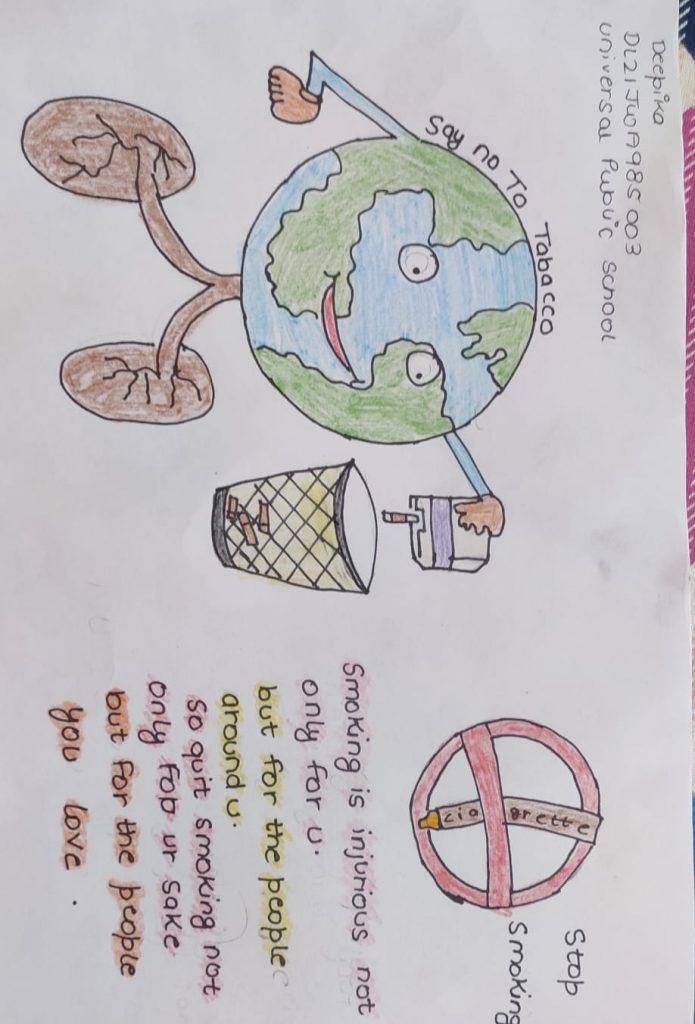 Deepika
DL21JWA985003
Universal Public School
Say no To Tabacco
Stop
Smoking
cig arette
Smoking is injurious not
only for u.
but for the people
around u.
so quit smoking not
only For ur sake
but for the people
you love.